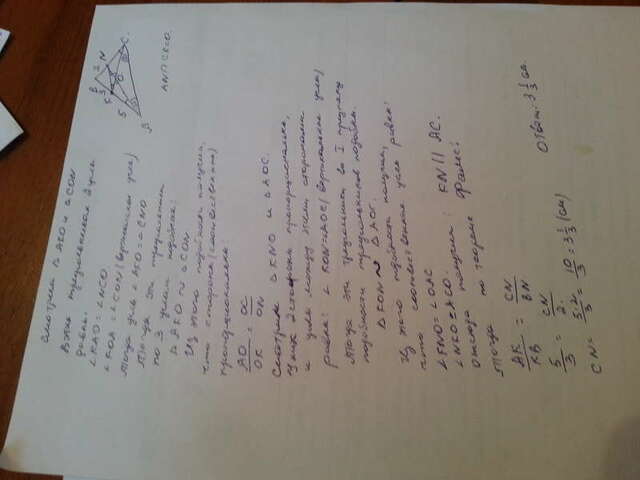 Смотрим △ AKO и △ CON
В этих треугольниках 2 угла
равны:
∠KAO = ∠NCO
∠KOA = ∠CON (вертикальные углы)
тогда угол ∠AKO = ∠CNO
тогда эти треугольники
по 3 углам подобны:
△ AKO ~ △ CON
Из этого подобия получим,
что стороны (соответственно)
пропорциональны:
AO/OK = OC/ON
Смотрим △ KNO и △ AOC.
У них 2 стороны пропорциональны,
и углы между этими сторонами
равны: ∠KON = ∠AOC (вертикальные углы)
тогда эти треугольники по I признаку
подобия треугольников подобны.
△ KON ~ △ AOC.
Из этого подобия получим,
что соответственные углы равны:
∠KNO = ∠OAC
∠NKO = ∠ACO.
отсюда получим: KN || AC.
тогда по теореме Фалеса:
AK/KB = CN/BN
5/3 = CN/2
CN = 5·2/3 = 10/3 = 3 1/3 (см)
Ответ: 3 1/3 см.
B
3
2
N
K
5
O
C.
AN∩CK=O.